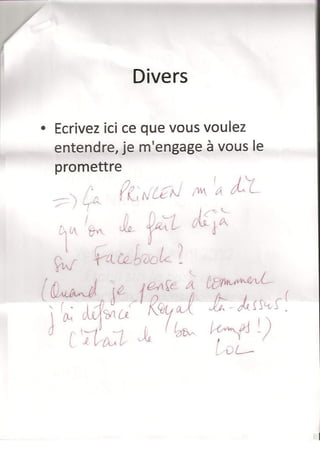 Divers
• Ecrivez ici ce que vous voulez
entendre, je m'engage à vous le
promettre
=> Ça PRiNCEN m'a dit
qu'on le fait déjà
sur Facebook ?
(Quand je pense à comment
j'ai défoncé Royal là-dessus !
C'était le bon temps !)
LOL